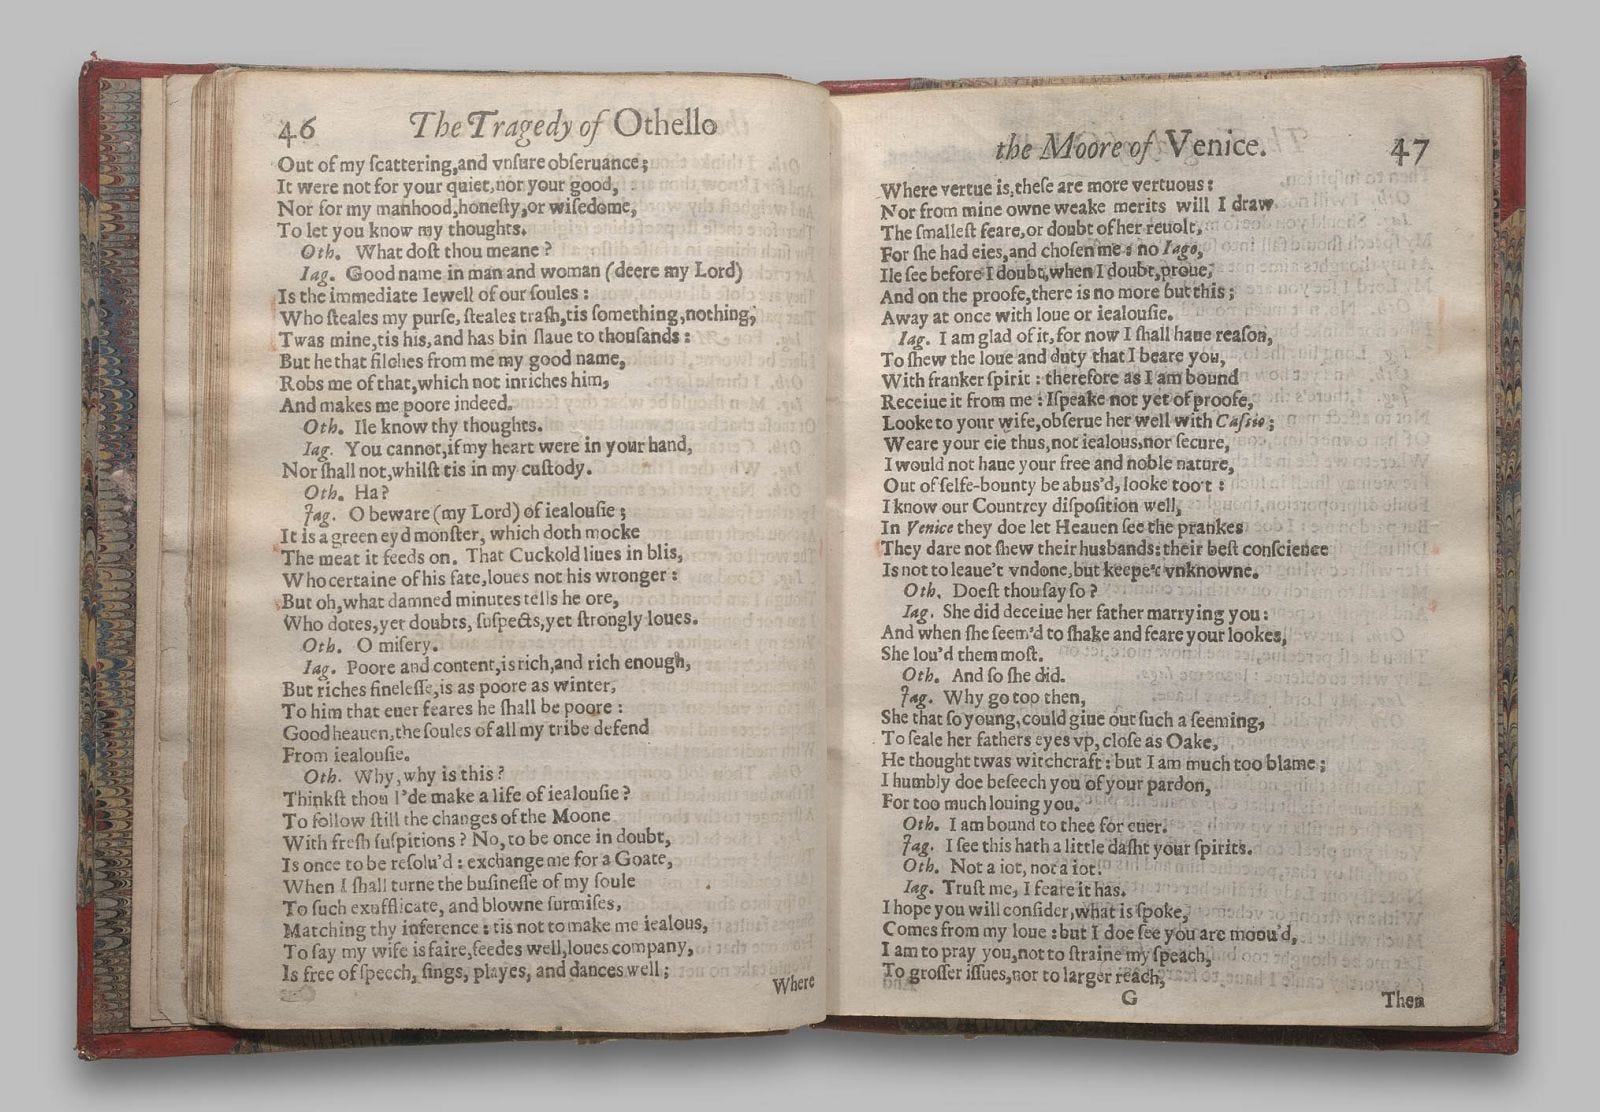 46
The Tragedy of Othello
Out of my ſcattering,and vnſure obſeruance;
It were not for your quiet,nor your good,
Nor for my manhood,honeſty,or wiſedome,
To let you know my thoughts.
Oth. What doſt thou meane?
Iag. Good name in man and woman (deere my Lord)
Is the immediate Iewell of our ſoules:
Who ſteales my purſe, ſteales traſh,tis ſomething,nothing;
Twas mine,tis his,and has bin ſlaue to thouſands:
But he that filches from me my good name,
Robs me of that,which not inriches him,
And makes me poore indeed.
Oth. Ile know thy thoughts.
Iag. You cannot,if my heart were in your hand,
Nor ſhall not,whilſt tis in my cuſtody.
Oth. Ha?
Jag. O beware (my Lord) of iealouſie;
It is a green eyd monſter, which doth mocke
The meat it feeds on. That Cuckold liues in blis,
Who certaine of his fate,loues not his wronger:
But oh,what damned minutes tells he ore,
Who dotes,yet doubts, ſuſpects,yet ſtrongly loues.
Oth. O miſery.
Iag. Poore and content,is rich,and rich enough,
But riches fineleſſe,is as poore as winter,
To him that euer feares he ſhall be poore:
Good heauen,the ſoules of all my tribe defend
From iealouſie.
Oth. Why,why is this?
Thinkſt thou I'de make a life of iealouſie?
To follow ſtill the changes of the Moone
With freſh ſuſpitions? No, to be once in doubt,
Is once to be reſolu'd: exchange me for a Goate,
When I ſhall turne the buſineſſe of my ſoule
To ſuch exufflicate, and blowne ſurmiſes,
Matching thy inference: tis not to make me iealous,
To ſay my wife is faire,feedes well,loues company,
Is free of ſpeech, ſings, playes, and dances well;
Where
the Moore of Venice.
47
Where vertue is,theſe are more vertuous:
Nor from mine owne weake merits will I draw
The ſmalleſt feare,or doubt of her reuolt,
For ſhe had eies,and choſen me: no Iago,
Ile ſee before I doubt,when I doubt,proue,
And on the proofe,there is no more but this;
Away at once with loue or iealouſie.
Iag. I am glad of it,for now I ſhall haue reaſon,
To ſhew the loue and duty that I beare you,
With franker ſpirit: therefore as I am bound
Receiue it from me: I ſpeake not yet of proofe,
Looke to your wife,obſerue her well with Caſsio;
Weare your eie thus,not iealous,nor ſecure,
I would not haue your free and noble nature,
Out of ſelfe-bounty be abus'd, looke too't:
I know our Countrey diſpoſition well,
In Venice they doe let Heauen ſee the prankes
They dare not ſhew their husbands: their beſt conſcience
Is not to leaue't vndone,but keepe't vnknowne.
Oth. Doeſt thou ſay ſo?
Iag. She did deceiue her father marrying you:
And when ſhe ſeem'd to ſhake and feare your lookes,
She lou'd them moſt.
Oth. And ſo ſhe did.
Jag. Why go too then,
She that ſo young,could giue out ſuch a ſeeming,
To ſeale her fathers eyes vp, cloſe as Oake,
He thought twas witchcraft: but I am much too blame;
I humbly doe beſeech you of your pardon,
For too much louing you.
Oth. I am bound to thee for euer.
Jag. I ſee this hath a little daſht your ſpirits.
Oth. Not a iot, not a iot.
Iag. Truſt me, I feare it has.
I hope you will conſider,what is ſpoke,
Comes from my loue: but I doe ſee you are moou'd,
I am to pray you,not to ſtraine my ſpeach,
To groſſer iſſues,nor to larger reach,
G
Then